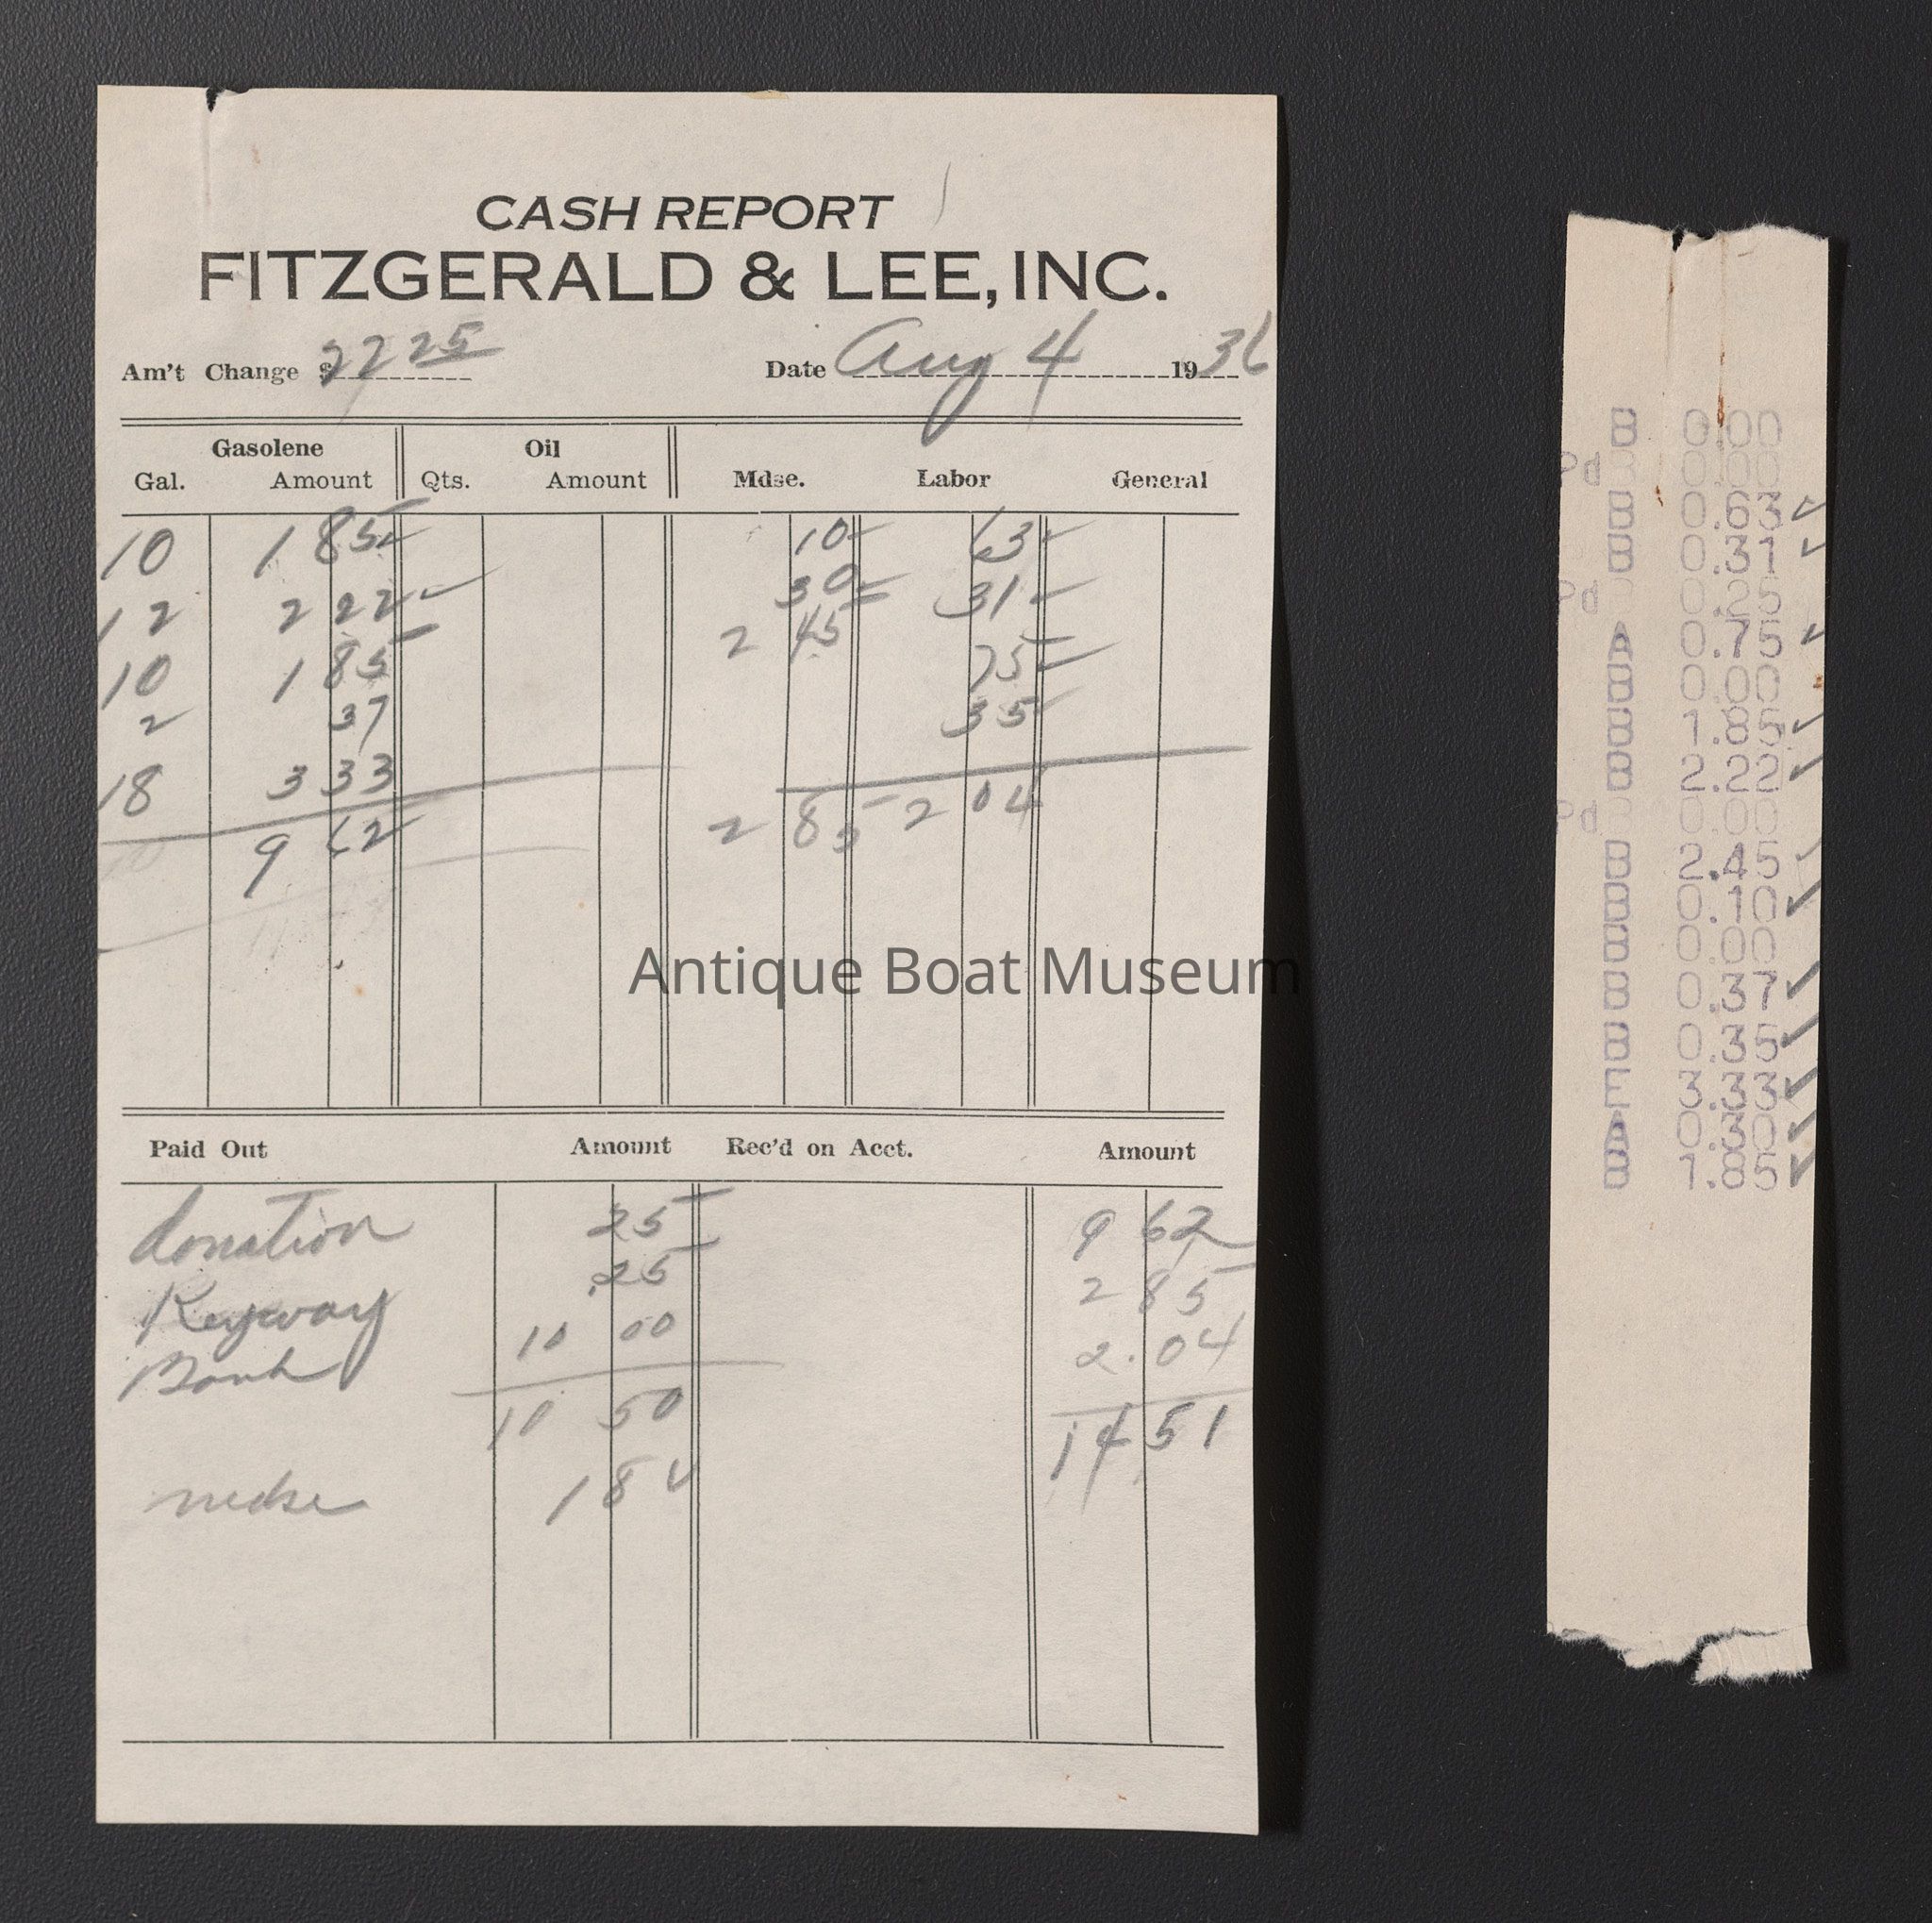 CASH REPORT
FITZGERALD & LEE, INC.
Am't Change $ 22 25 Date Aug 4 1936
Gasolene Oil
Gal. Amount Qts. Amount Mdse. Labor General
10 1 85 10 63
12 2 22 30 31
10 1 85 2 45 75
2 37 35
18 3 33
9 62 2 85 2 04
Antique Boat Museum
Paid Out Amount Rec'd on Acct. Amount
donation 25 9 62
Keyway .25 2 85
Bank 10 00 2.04
10 50 14 51
mdse 1 8
B 0.00
Pd 0.00
B 0.63
B 0.31
Pd 0.25
A 0.75
B 0.00
B 1.85
B 2.22
Pd 0.00
B 2.45
B 0.10
B 0.00
B 0.37
B 0.35
E 3.33
A 0.30
B 1.85